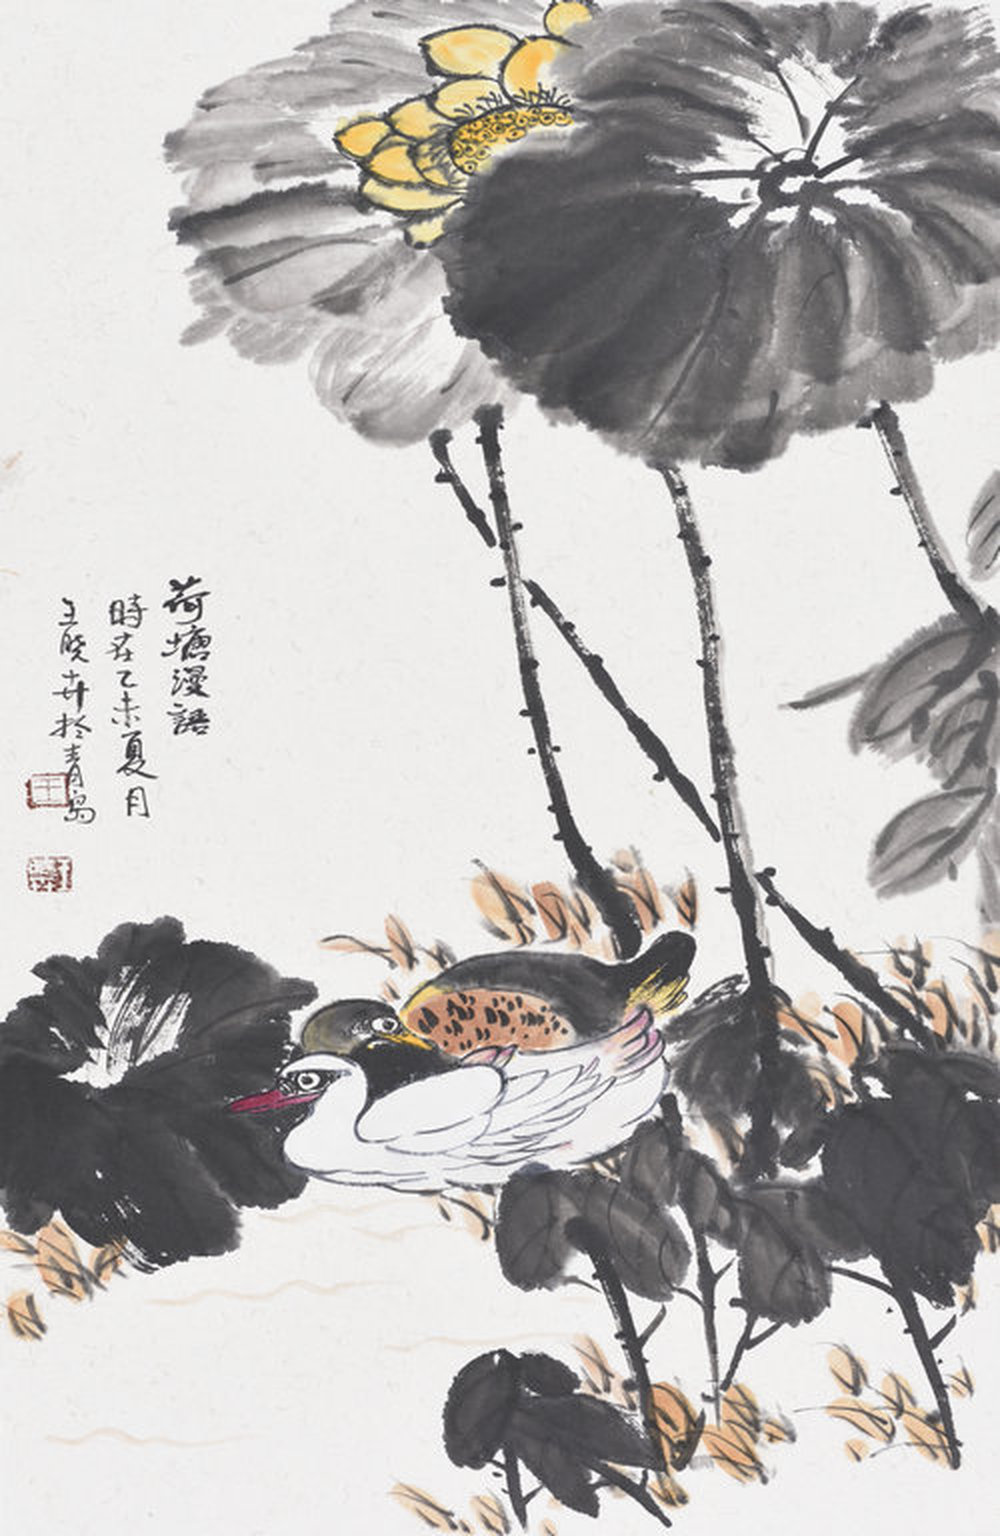 荷塘漫語
時在乙未夏月
王晓卉於青島
王